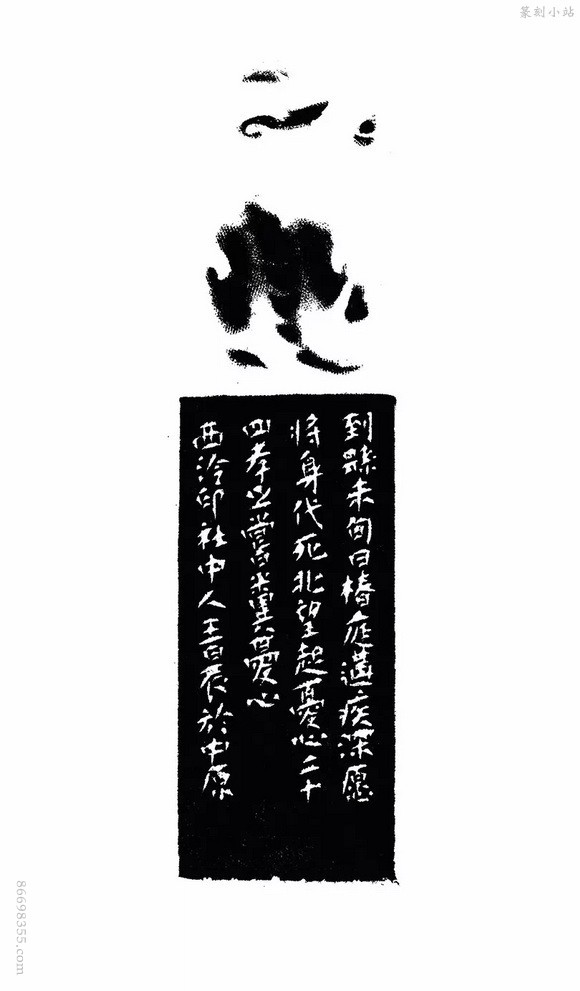 篆刻小站
到縣未旬日椿庭遘疾深愿
將身代死北望起憂心二十
四孝之嘗糞憂心
西泠印社中人王百晨於中原
86698355.com